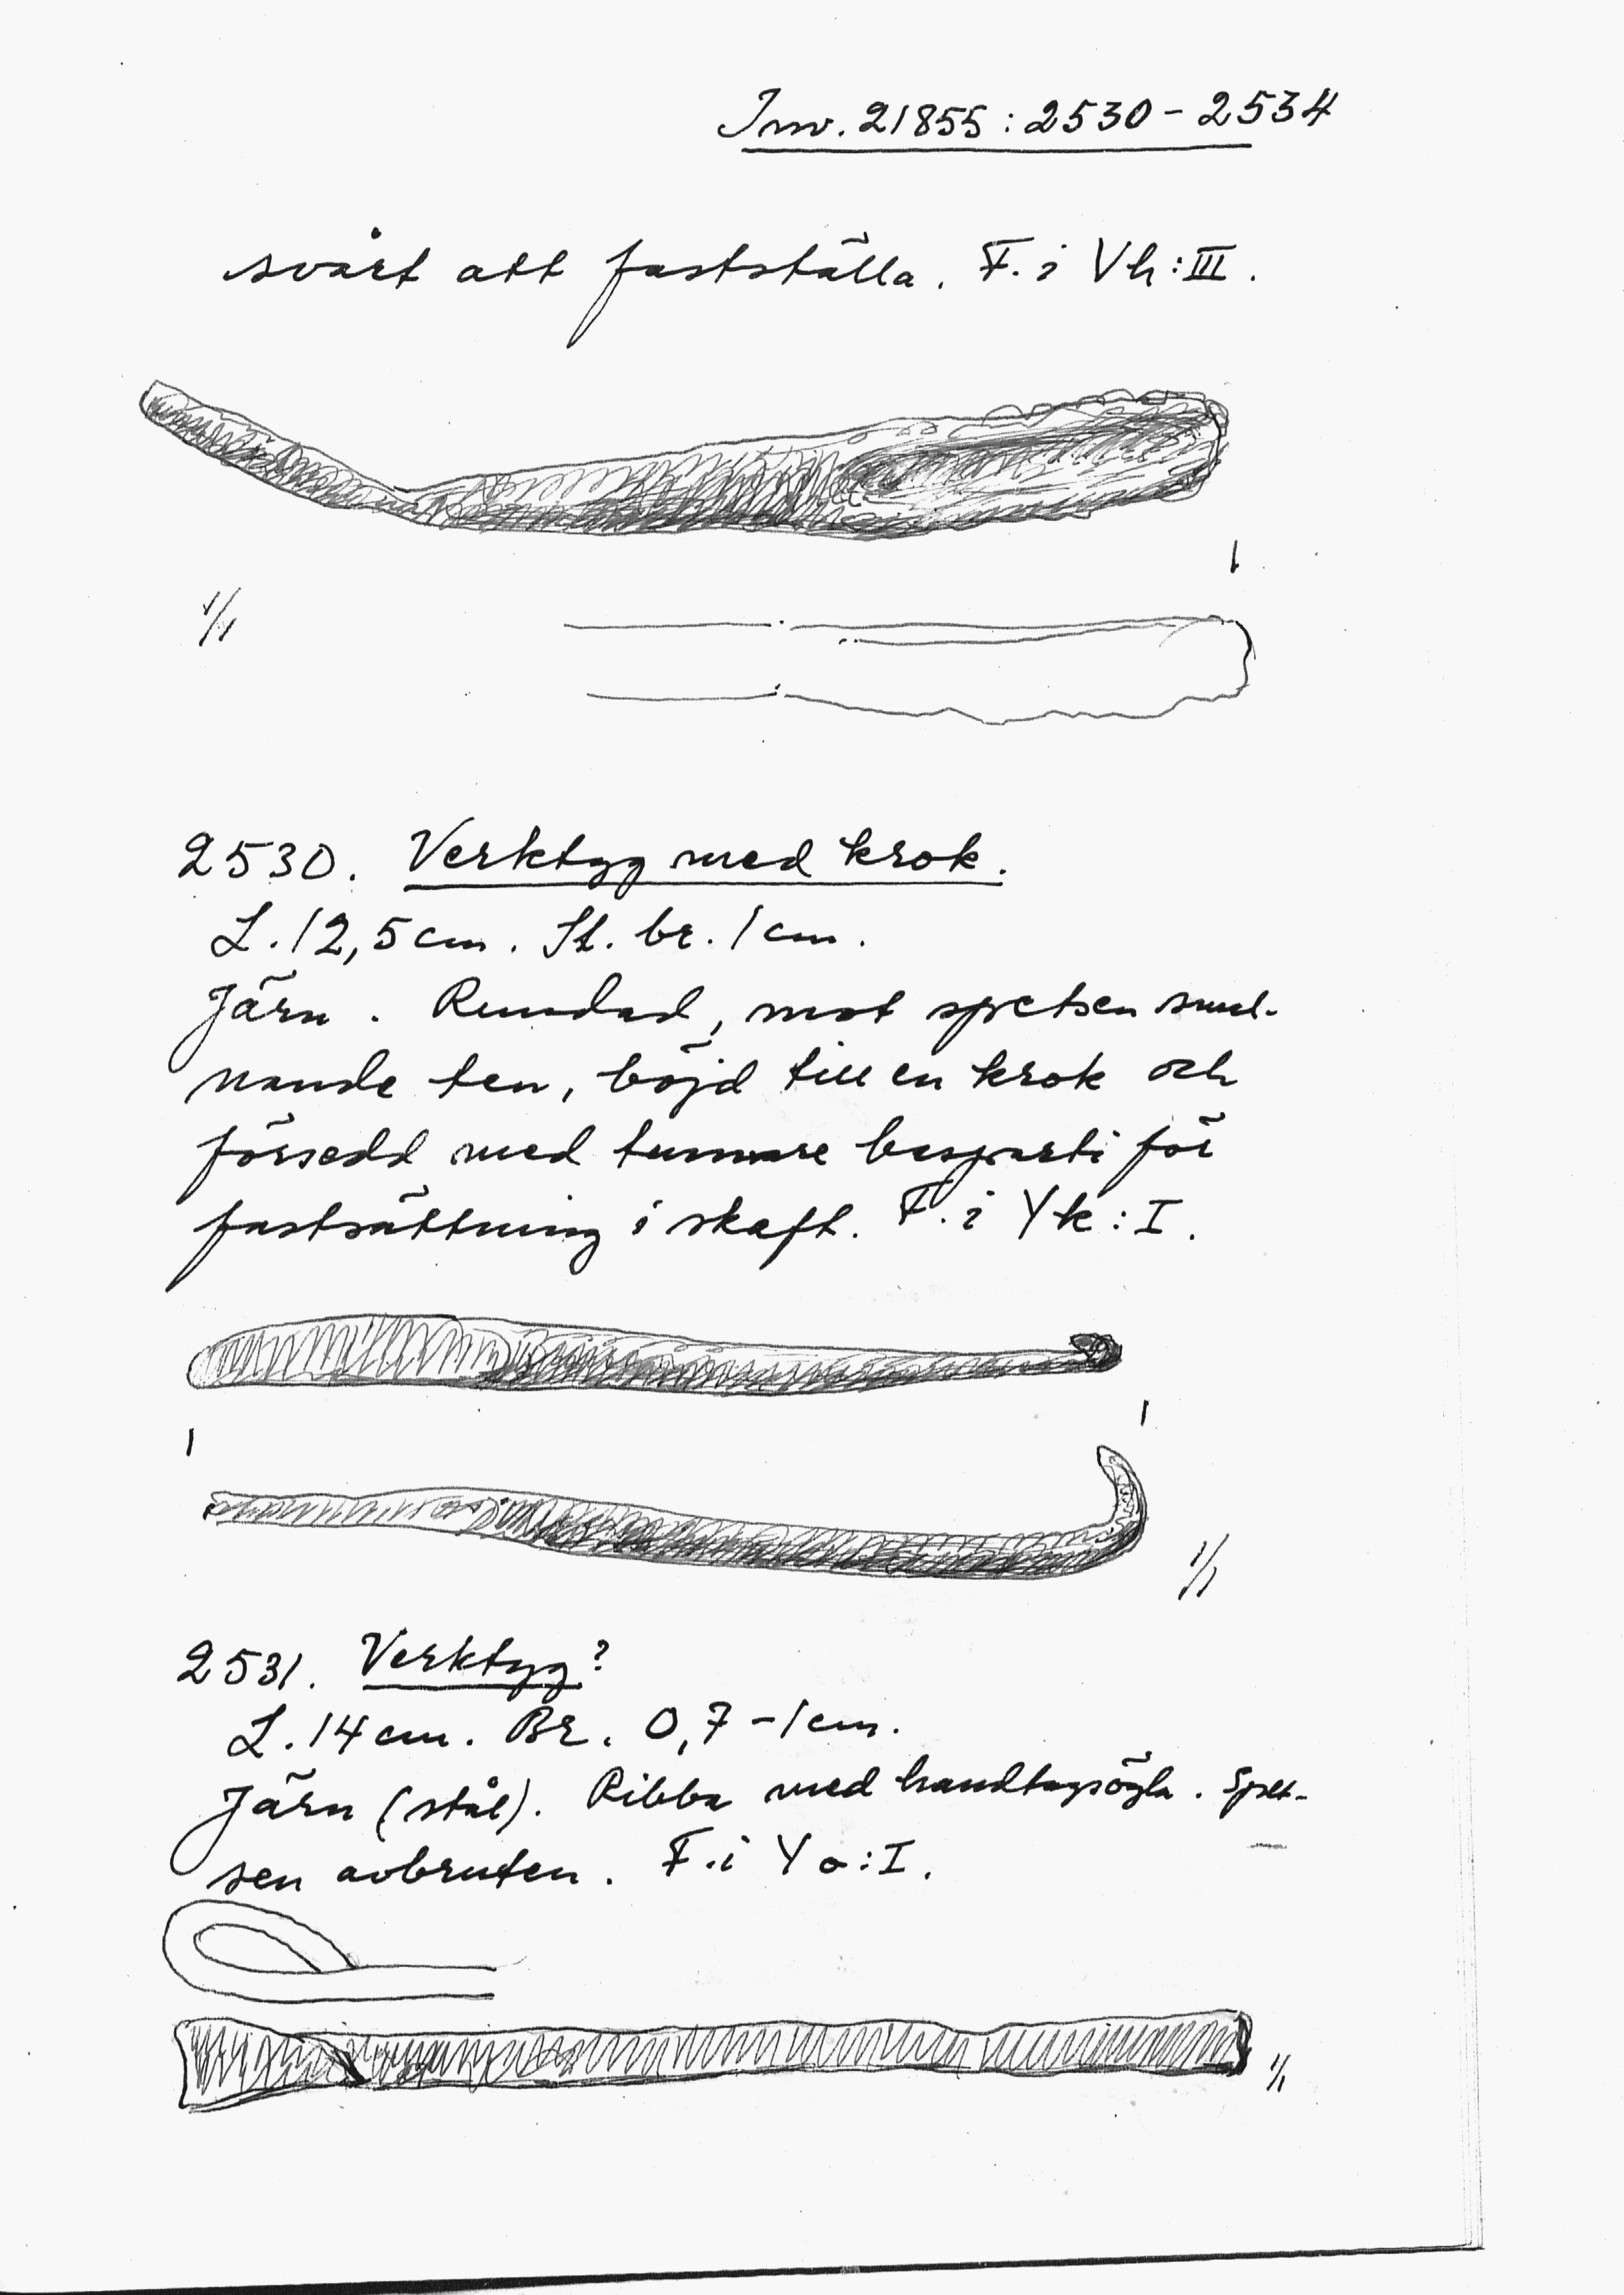 Inv. 21855:2530-2534
svårt att fastställa. F. i Vh:III.
1/1
2530. Verktyg med krok.
L. 12,5 cm. St. br. 1 cm.
Järn. Rundad, mot spetsen smal-
nande ten, böjd till en krok och
försedd med tunnare basparti för
fastsättning i skaft. F. i Yk:I.
1/1
2531. Verktyg?
L. 14 cm. Br. 0,7-1 cm.
Järn (stål). Ribba med handtagsögla. Spet-
sen avbruten. F. i Yo:I.
1/1